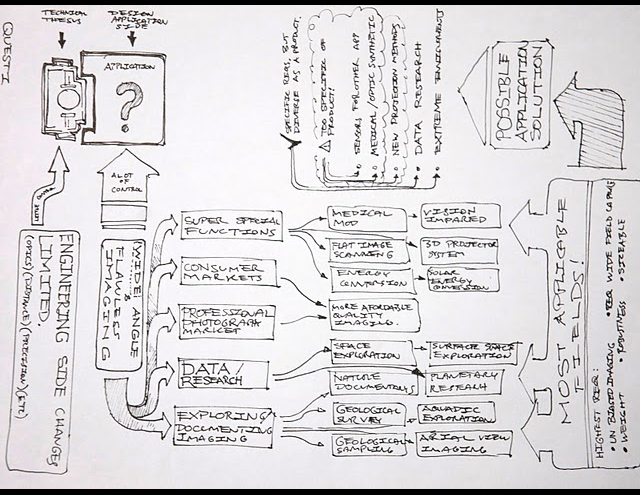 TECHNICAL
THESIS
DESIGN
APPLICATION
SIDE
APPLICATION
?
A LOT OF
CONTROL
ENGINEERING SIDE CHANGES
LIMITED.
(OPTICS)(DISTANCE)(PRECISION)(ETC)
WIDE ANGLE
FLAWLESS
IMAGING
SUPER SPECIAL
FUNCTIONS
CONSUMER
MARKETS
PROFESSIONAL
PHOTOGRAPH
MARKET
DATA/
RESEARCH
EXPLORING/
DOCUMENTING
IMAGING
MEDICAL
MOD
FLAT IMAGE
SCANNING
ENERGY
CONVERSION
MORE AFFORDABLE
QUALITY
IMAGING.
SPACE
EXPLORATION
NATURE
DOCUMENTORYS
GEOLOGICAL
SURVEY
GEOLOGICAL
SAMPLING
VISION
IMPARED
3D PROJECTOR
SYSTEM
SOLAR
ENERGY
CONVERSION
SURFACE SPACE
EXPLORATION
PLANETARY
RESEARCH
AQUADIC
EXPLORATION
ARIAL VIEW
IMAGING
SPECIFIC REQS, BUT
DIVERSE AS A PRODUCT.
TOO SPECIFIC OF
PRODUCT!
• SENSORS FOR OTHER APP
• MEDICAL/OPTIC SYNTHETIC
• NEW PROJECTION METHODS
• DATA RESEARCH
• EXTREME ENVIRONMENTS
POSSIBLE
APPLICATION
SOLUTION
MOST APPLICABLE
FIELDS!
HIGHEST REQ:
• UNBIASED IMAGING
• WIDE FIELD
• WEIGHT
• ROBUSTNESS
• SIZEABLE